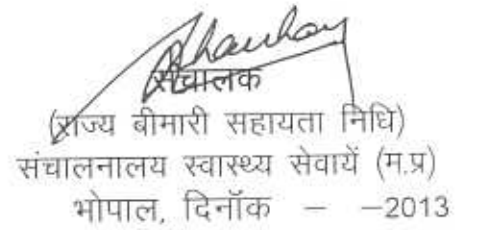 संचालक
(राज्य बीमारी सहायता निधि)
संचालनालय स्वास्थ्य सेवायें (म.प्र)
भोपाल, दिनॉक – –2013